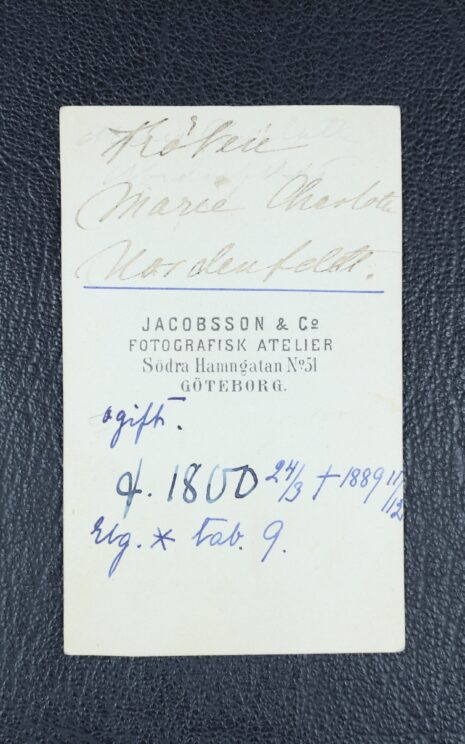 Fröken
Marie Charlotte
Nordenfeldt.
JACOBSSON & Cº
FOTOGRAFISK ATELIER
Södra Hamngatan Nº 51
GÖTEBORG.
ogift.
f. 1800 24/3 † 1889 11/12
Elg. * tab. 9.